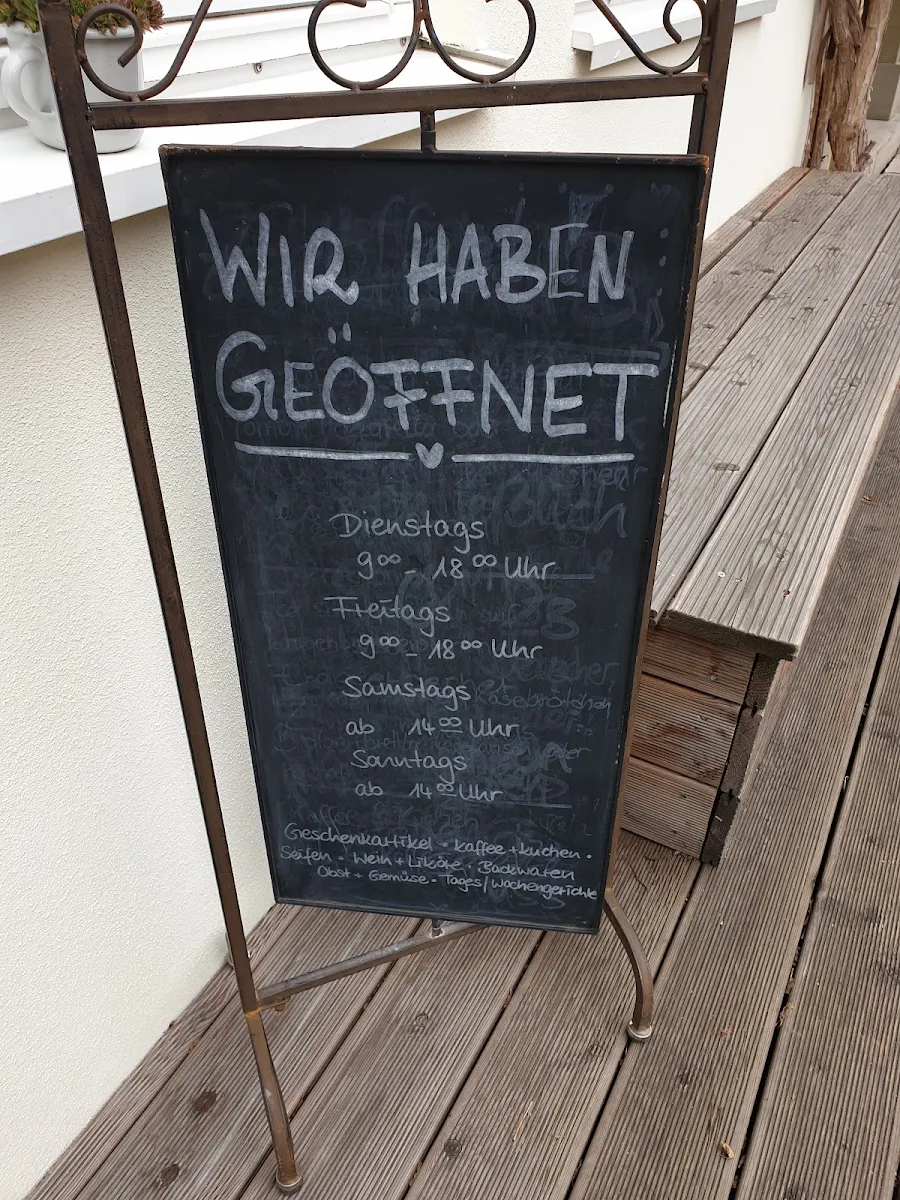 WIR HABEN
GEÖFFNET
Dienstags
9⁰⁰ - 18⁰⁰ Uhr
Freitags
9⁰⁰ - 18⁰⁰ Uhr
Samstags
ab 14⁰⁰ Uhr
Sonntags
ab 14⁰⁰ Uhr
Geschenkartikel • Kaffee + Kuchen •
Seifen • Wein + Liköre • Backwaren
Obst + Gemüse • Tages/Wochengerichte